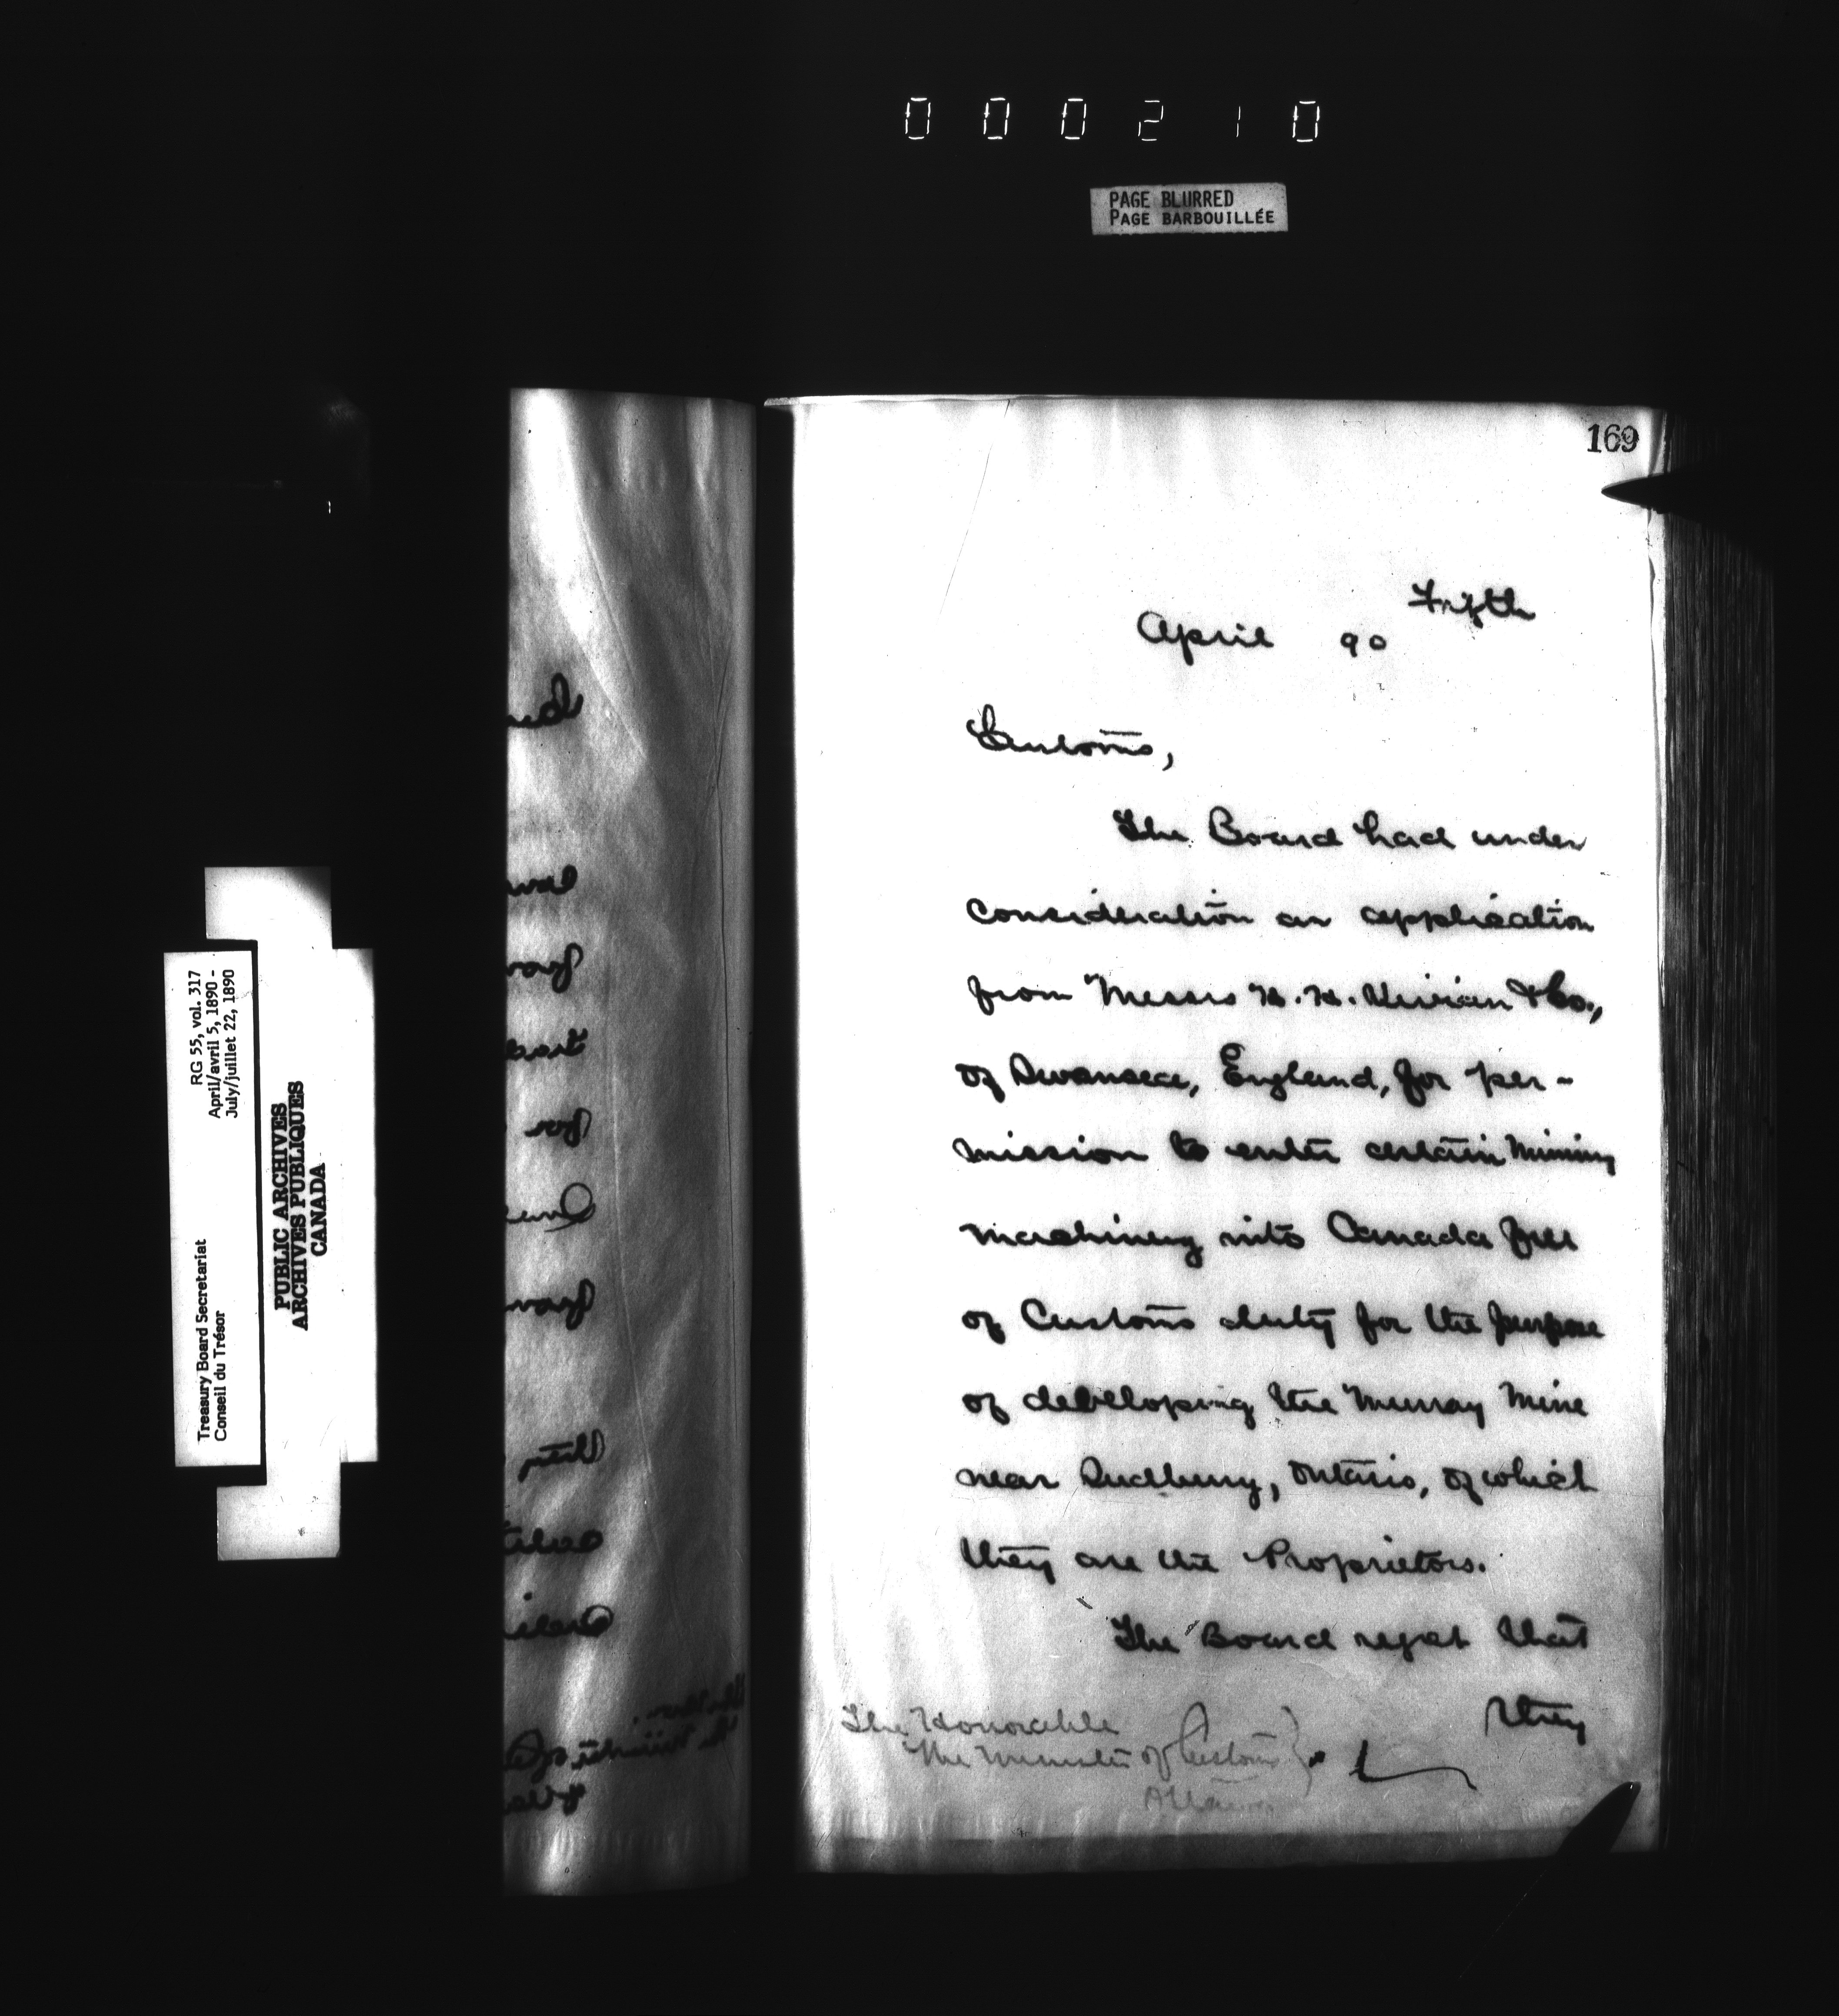 000210
PAGE BLURRED
PAGE BARBOUILLÉE
RG 55, vol. 317
April/avril 5, 1890 -
July/juillet 22, 1890
Treasury Board Secretariat
Conseil du Trésor
PUBLIC ARCHIVES
ARCHIVES PUBLIQUES
CANADA
169
Fifth
April 90
Customs,
The Board had under
consideration an application
from Messrs H. H. Vivian & Co.,
of Swansea, England, for per-
mission to enter certain mining
machinery into Canada free
of Customs duty for the purpose
of developing the Murray Mine
near Sudbury, Ontario, of which
they are the Proprietors.
The Board regret that
they
The Honorable
The Minister of Customs
Ottawa